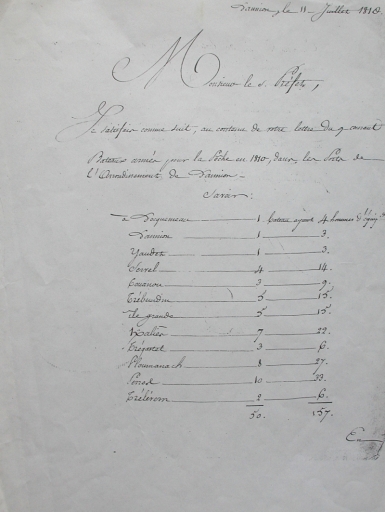 Lannion, le 11 Juillet 1810.
Monsieur le s. Préfet,
Je satisfais comme suit, au contenu de votre lettre du 9 courant
Bateaux armés pour la Pêche en 1810, dans les Ports de
l'Arrondissement de Lannion.
Savoir:
à Locquemeau 1 Bateau ayant 4 hommes
Lannion 1 3.
Yaudet 1 3.
Servel 4 14.
3 9.
Trébeurden 5 15.
Ile grande 5 15.
7 22.
3 6.
Ploumanach 8 27.
10 33.
Trélévern 2 6.
50. 157.